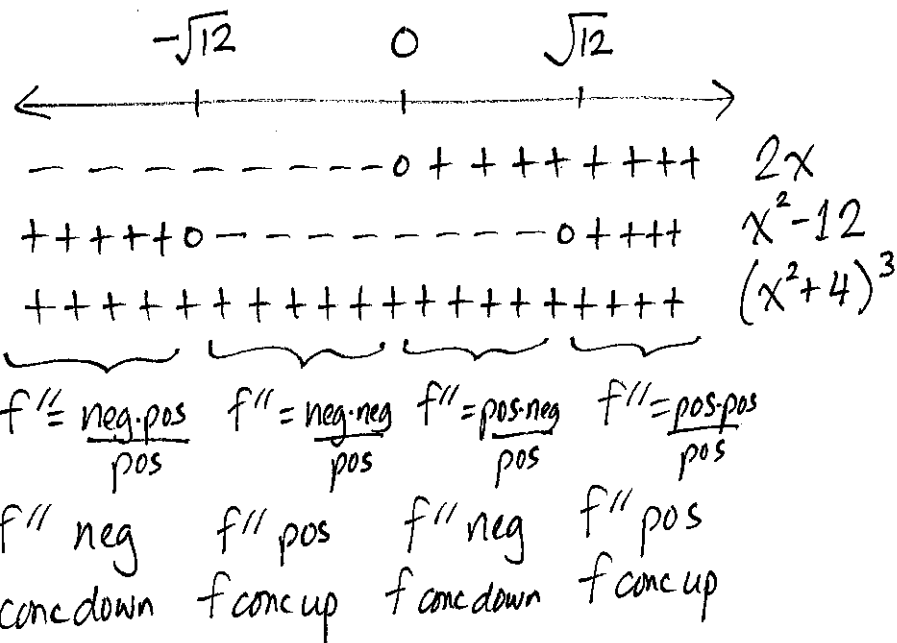 -√12 0 √12
- - - - - - - - - - 0 + + + + + + + + 2x
+ + + + + 0 - - - - - - - - - - 0 + + + + x²-12
+ + + + + + + + + + + + + + + + + + + (x²+4)³
f''= neg·pos/pos f''= neg·neg/pos f''=pos·neg/pos f''=pos·pos/pos
f'' neg f'' pos f'' neg f'' pos
conc down f conc up f conc down f conc up